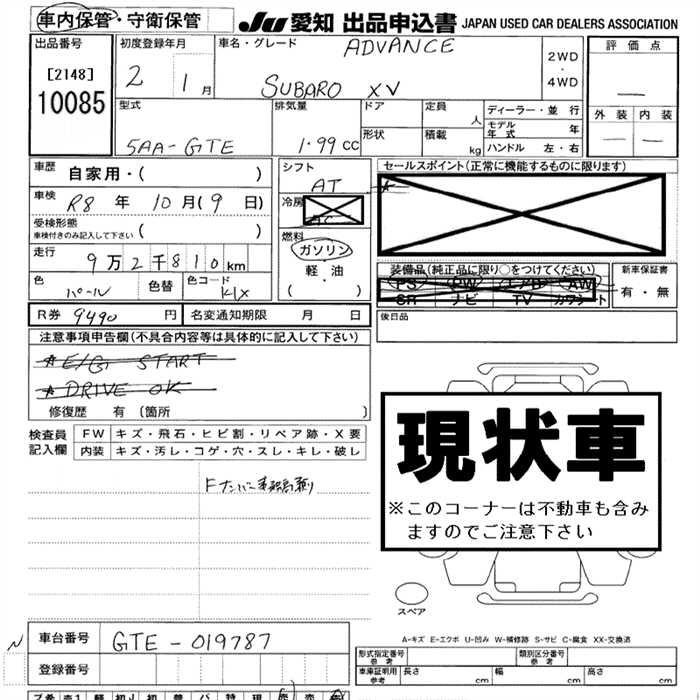 車内保管・守衛保管
JU 愛知 出品申込書 JAPAN USED CAR DEALERS ASSOCIATION
出品番号 初度登録年月 車名・グレード ADVANCE 評価点
[2148] 2WD
10085 2 1月 SUBARO XV ・ 4WD
外装 内装
型式 排気量 ドア 定員 人 ディーラー・並行
モデル年式 年
5AA-GTE 1.99cc 形状 積載 kg ハンドル 左・右
車歴 自家用・( ) シフト セールスポイント(正常に機能するものに限ります)
車検 R8年 10月(9日) AT
冷房
受検形態
車検付きのみ記入して下さい ( )
燃料
走行 9万2千810km ガソリン 装備品(純正品に限り○をつけてください) 新車保証書
軽・油 PS PW エアB AW 有・無
色 パール 色替 色コード K1X ( ) SR ナビ TV カワシート
R券 9490円 名変通知期限 月 日 後日品
注意事項申告欄(不具合内容等は具体的に記入して下さい)
☆E/G START
☆DRIVE OK
修復歴 有 〔箇所 〕
現状車
検査員 FW キズ・飛石・ヒビ割・リペア跡・X要
記入欄 内装 キズ・汚レ・コゲ・穴・スレ・キレ・破レ
Fナンバー
※このコーナーは不動車も含み
ますのでご注意下さい
スペア
A-キズ E-エクボ U-凹み W-補修跡 S-サビ C-腐食 XX-交換済
N 車台番号 GTE-019787
形式指定番号 参考 類別区分番号 参考
登録番号 車庫証明用 参考 長さ cm 幅 cm 高さ cm